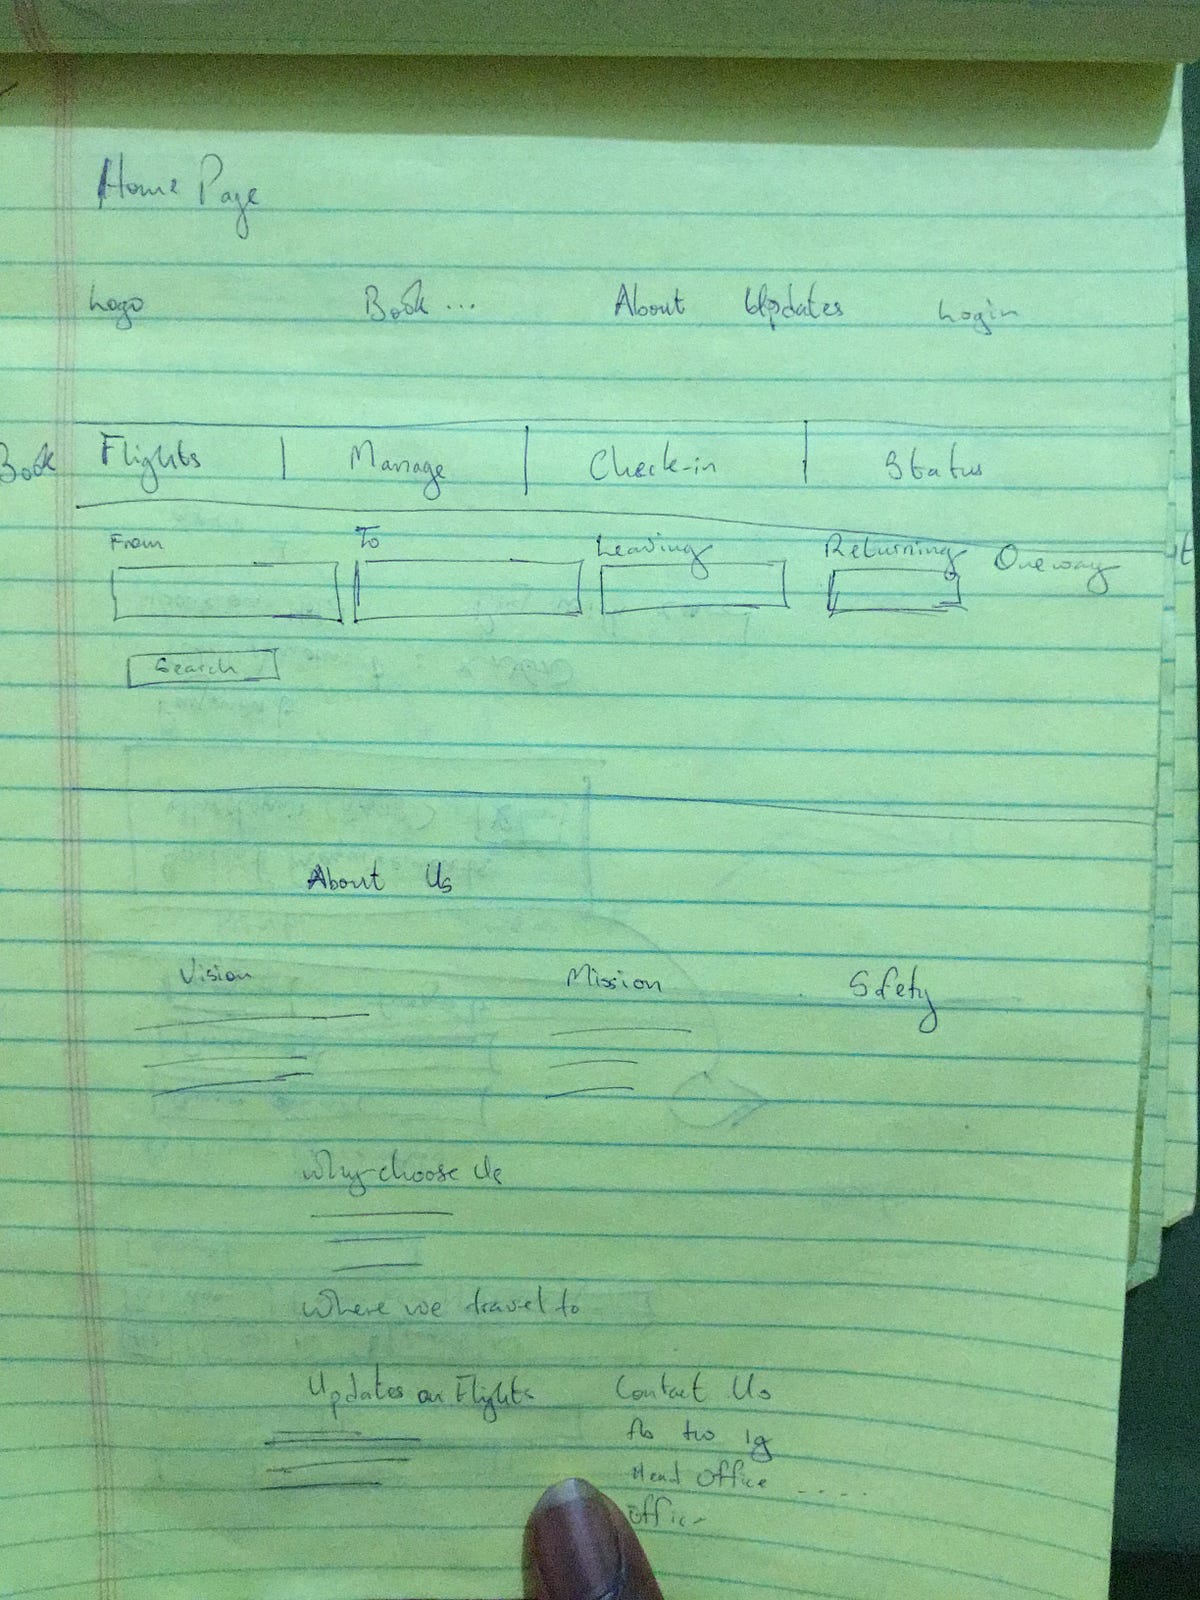 Home Page
Logo Book ... About Updates Login
Book Flights | Manage | Check-in | Status
From To Leaving Returning One way
Search
About Us
Vision Mission Safety
Why choose Us
Where we travel to
Updates on Flights Contact Us
fb tw ig
Head Office ....
Office